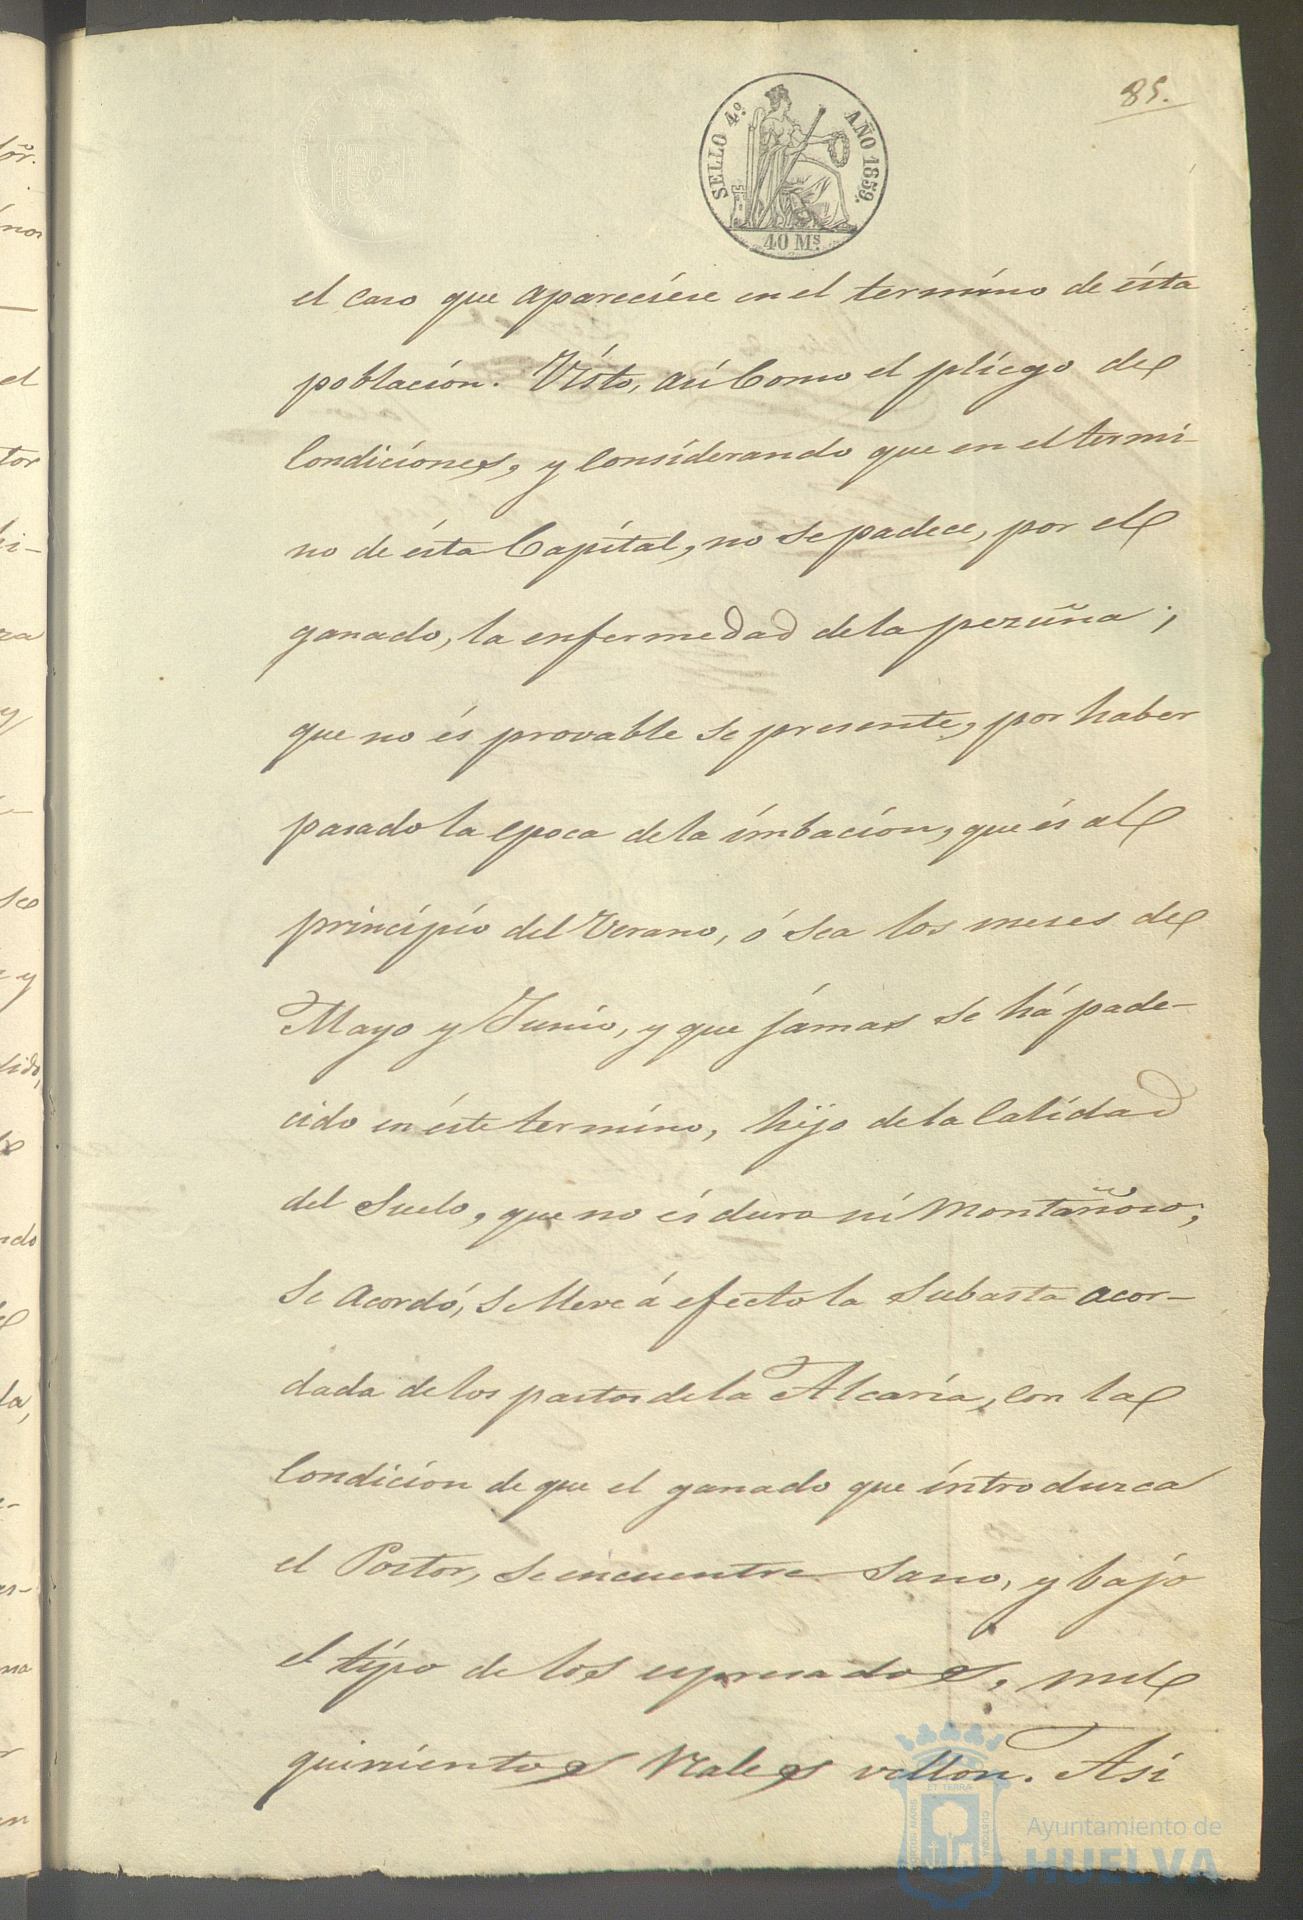 85.
SELLO 4º AÑO 1859.
40 Ms.
el caso que apareciese en el término de ésta
población. Visto, así Como el pliego de
Condiciones, y Considerando que en el termi-
no de ésta Capital, no se padece, por el
ganado, la enfermedad de la pezuña;
que no és provable se presente, por haber
pasado la epoca de la imbación, que és al
principio del Verano, ó sea los meses de
Mayo y Junio, y que jámas se há pade-
cido en éste termino, hijo de la Calidad
del Suelo, que no és duro ni Montañoso,
Se acordó, se lleve á efecto la Subasta acor-
dada de los pastos de la Alcaria, con la
Condicion de que el ganado que introduzca
el Postor, se encuentre Sano, y bajo
el tipo de los espresados, mil
quinientos Reales vellon. Asi
Ayuntamiento de
HUELVA